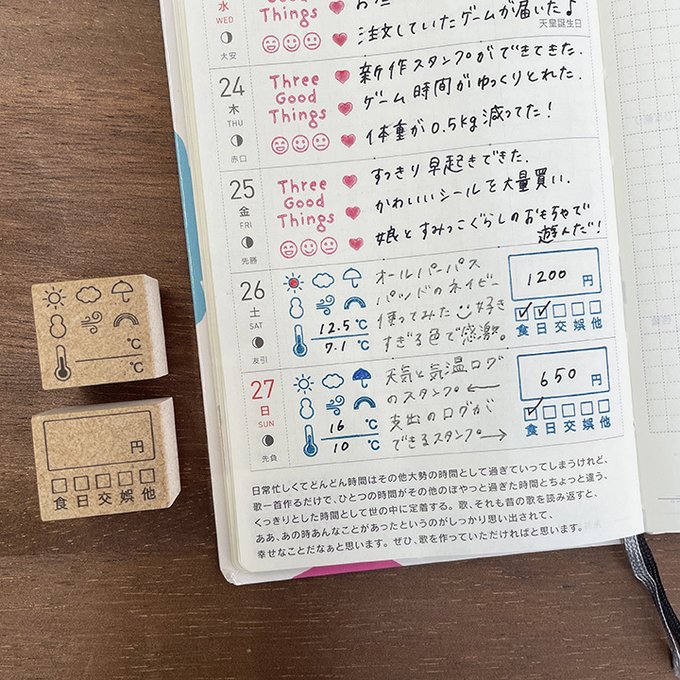 水
WED
大安
Good
Things
注文していたゲームが届いた♪
天皇誕生日
24
木
THU
赤口
Three
Good
Things
新作スタンプができてきた.
ゲーム時間がゆっくりとれた.
体重が0.5kg減ってた!
25
金
FRI
先勝
Three
Good
Things
すっきり早起きできた.
かわいいシールを大量買い.
娘とすみっこぐらしのおもちゃで
遊んだ!
26
土
SAT
友引
12.5℃
7.1℃
オールパーパス
パッドのネイビー
使ってみた 好き
すぎる色で感激。
1200円
食日交娯他
27
日
SUN
先負
16℃
10℃
天気と気温ログ
のスタンプ←
支出のログが
できるスタンプ→
650円
食日交娯他
日常忙しくてどんどん時間はその他大勢の時間として過ぎていってしまうけれど、
歌一首作るだけで、ひとつの時間がその他のぼやっと過ぎた時間とちょっと違う、
くっきりとした時間として世の中に定着する。歌、それも昔の歌を読み返すと、
ああ、あの時あんなことがあったというのがしっかり思い出されて、
幸せなことだなぁと思います。ぜひ、歌を作っていただければと思います。
℃
℃
円
食日交娯他